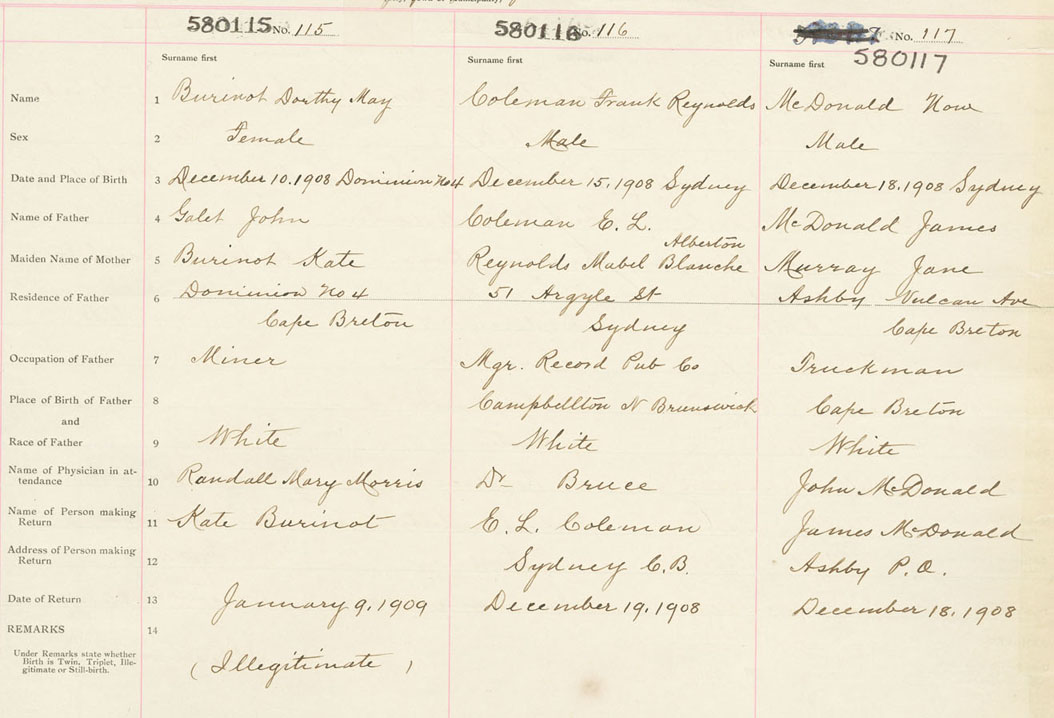 580115 No. 115
580116 No. 116
No. 117
580117
Surname first
Surname first
Surname first
Name 1 Burinot Dorthy May
Coleman Frank Reynolds
McDonald
Sex 2 Female
Male
Male
Date and Place of Birth 3 December 10.1908 Dominion No 4
December 15, 1908 Sydney
December 18, 1908 Sydney
Name of Father 4 Galet John
Coleman E. L.
McDonald James
Maiden Name of Mother 5 Burinot Kate
Alberton
Reynolds Mabel Blanche
Murray Jane
Residence of Father 6 Dominion No 4
Cape Breton
51 Argyle St
Sydney
Ashby Vulcan Ave
Cape Breton
Occupation of Father 7 Miner
Mgr. Record Pub Co
Truckman
Place of Birth of Father 8
Campbellton N Brunswick
Cape Breton
and
Race of Father 9 White
White
White
Name of Physician in at-
tendance 10 Randall Mary Morris
Dr Bruce
John McDonald
Name of Person making
Return 11 Kate Burinot
E. L. Coleman
James McDonald
Address of Person making
Return 12
Sydney C.B.
Ashby P.O.
Date of Return 13 January 9, 1909
December 19, 1908
December 18, 1908
REMARKS 14
Under Remarks state whether
Birth is Twin, Triplet, Ille-
gitimate or Still-birth.
(Illegitimate)